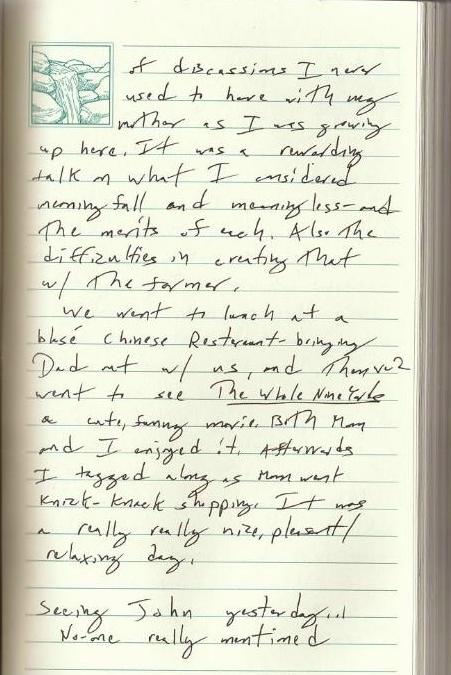 of discussions I never
used to have with my
mother as I was growing
up here. It was a rewarding
talk on what I considered
meaningfull and meaningless - and
the merits of each. Also the
difficulties in creating that
w/ the former.
We went to lunch at a
blasé Chinese Restaraunt - bringing
Dad out w/ us, and then we 2
went to see The Whole Nine Yards
a cute, funny movie. Both Mom
and I enjoyed it. Afterwards
I tagged along as Mom went
Knick-Knack shopping. It was
a really really nice, pleasent/
relaxing day.
Seeing John yesterday...
No-one really mentioned